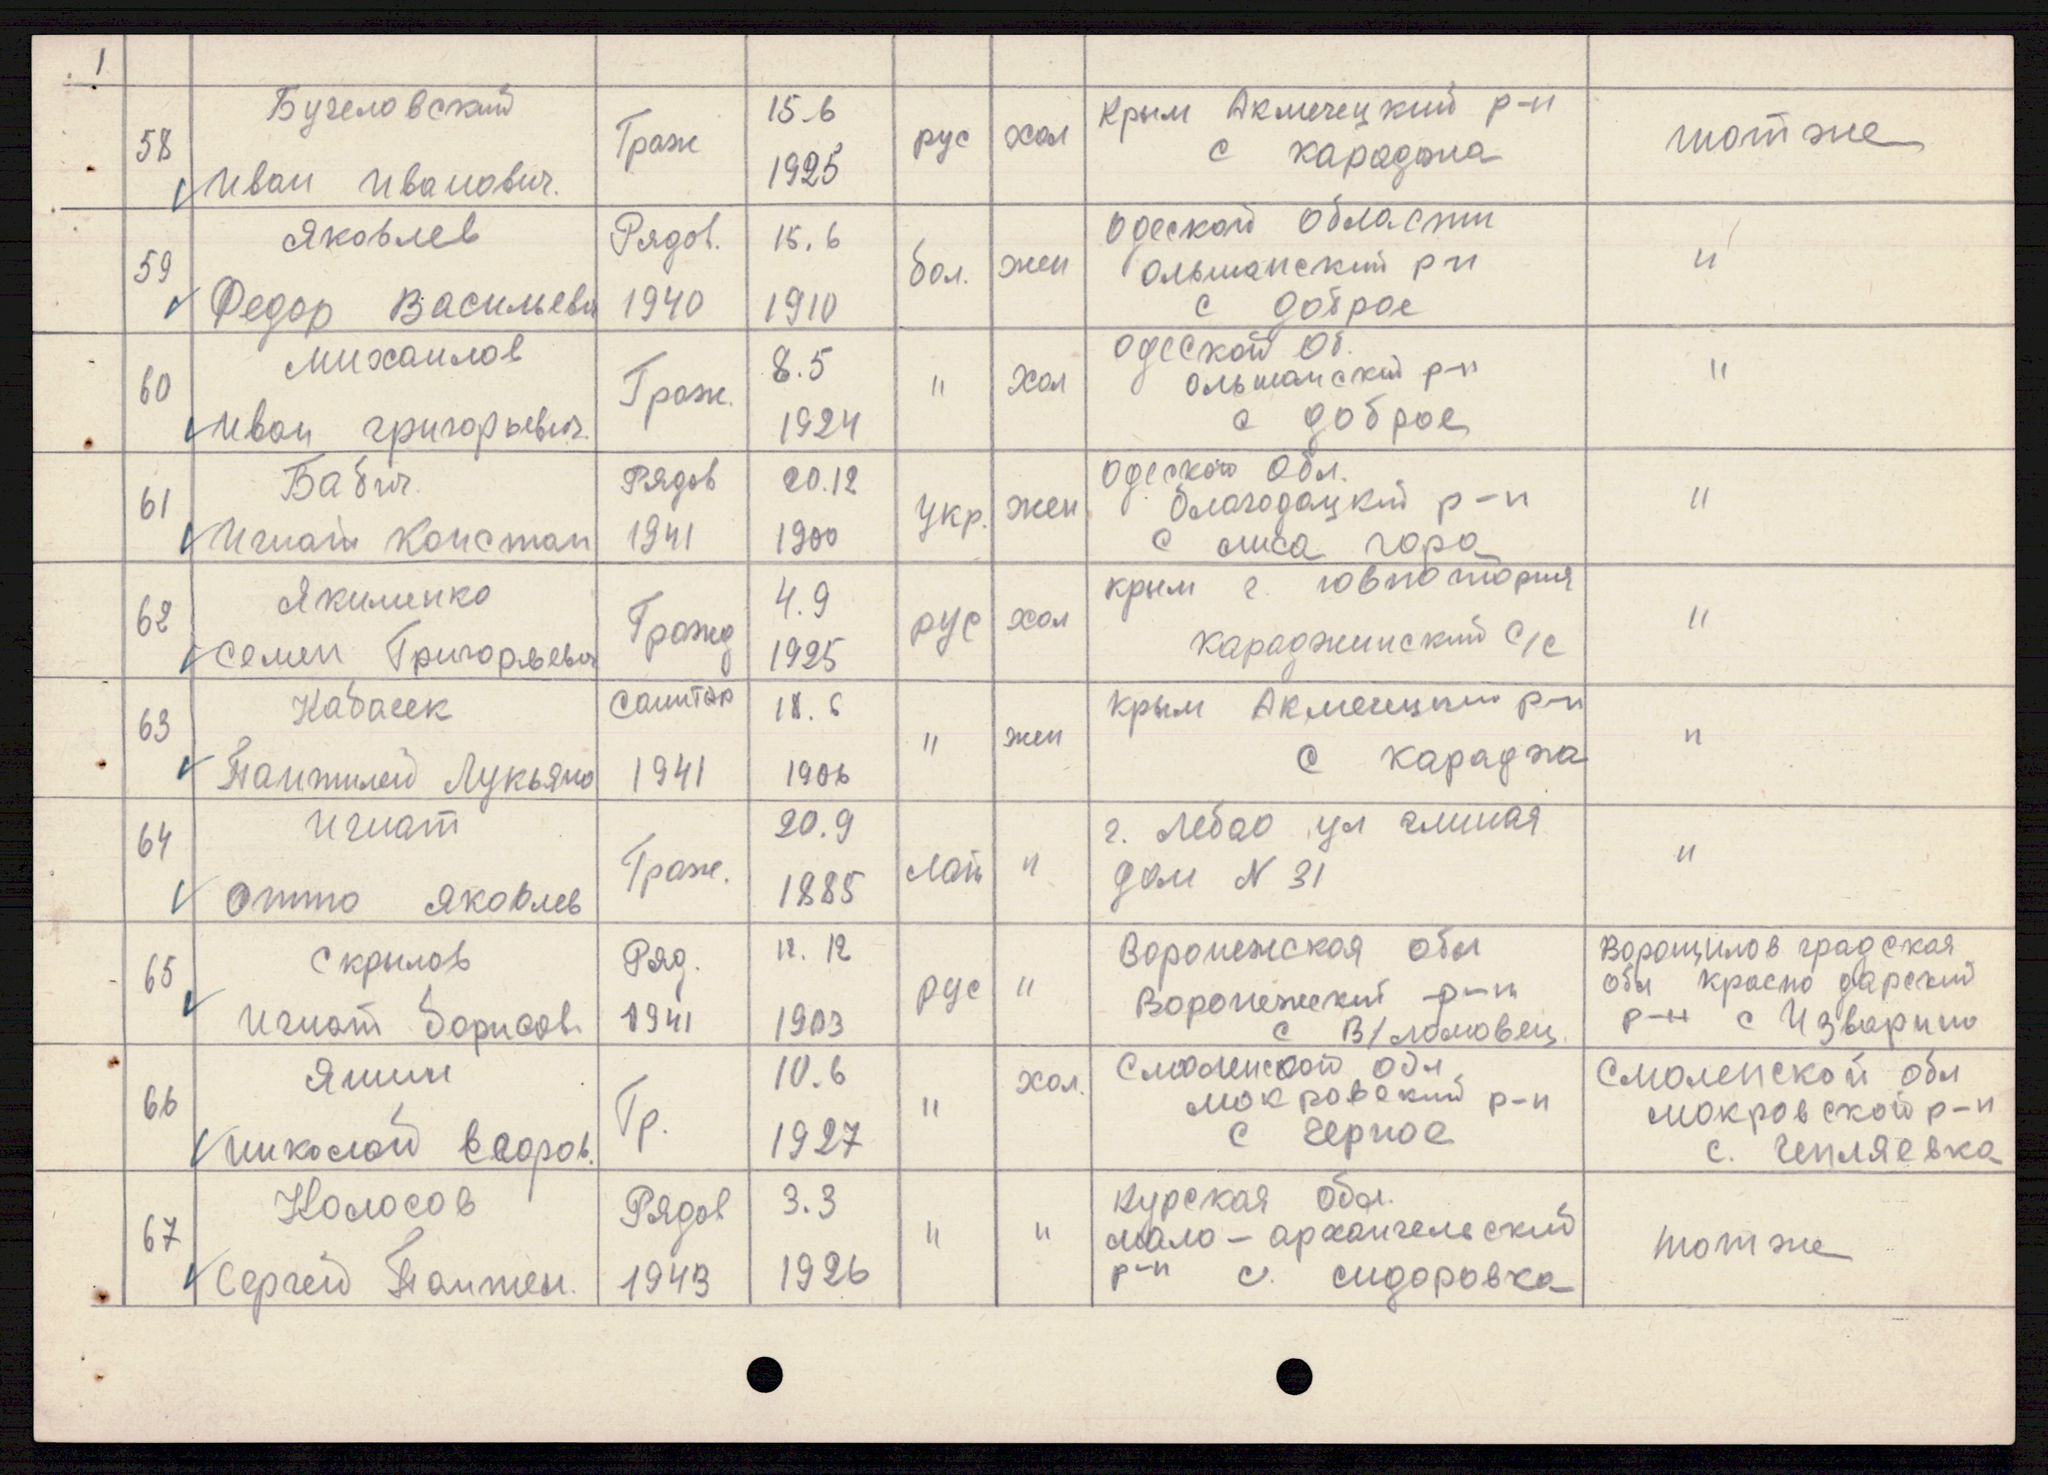 1
58 Бучеловский Иван Иванович. Граж 15.6 1925 рус хол Крым Акмечецкий р-н с караджа тотже
59 Яковлев Федор Васильеви Рядов. 1940 15.6 1910 бол. жен Одеской Области ольшанский р-н с доброе "
60 Михаилов Иван григорьевич. Граж. 8.5 1924 " хол одеской Об. ольшанский р-н с доброе "
61 Бабич. Игнат Констан Рядов 1941 20.12 1900 Укр. жен Одеской Обл. благодацкий р-н с лиса гора "
62 Якименко Семен Григорьевич Гражд 4.9 1925 рус хол крым г. ювпотория караджинский С/с "
63 Кабасек Панжилей Лукьяно Санитар 1941 18.6 1906 " жен Крым Акмечецкий р-н с караджа "
64 Игнат Отто Яковлев Граж. 20.9 1885 лат " г. Лебао ул глиная дом N 31 "
65 Скрылов Игнат борисов. Ряд. 1941 12.12 1903 рус " Воронежская обл Воронежский р-н с В/ломовец. Ворощиловградская обл краснодарский р-н с Изварино
66 Яшин николай Гр. 10.6 1927 " хол. Смоленской обл мокровский р-н с Черное Смоленской обл мокровской р-н с. Чепляевка
67 Колосов Сергей Пантел. Рядов 1943 3.3 1926 " " Курская Обл. мало-архангельский р-н с. сидоровка тотже